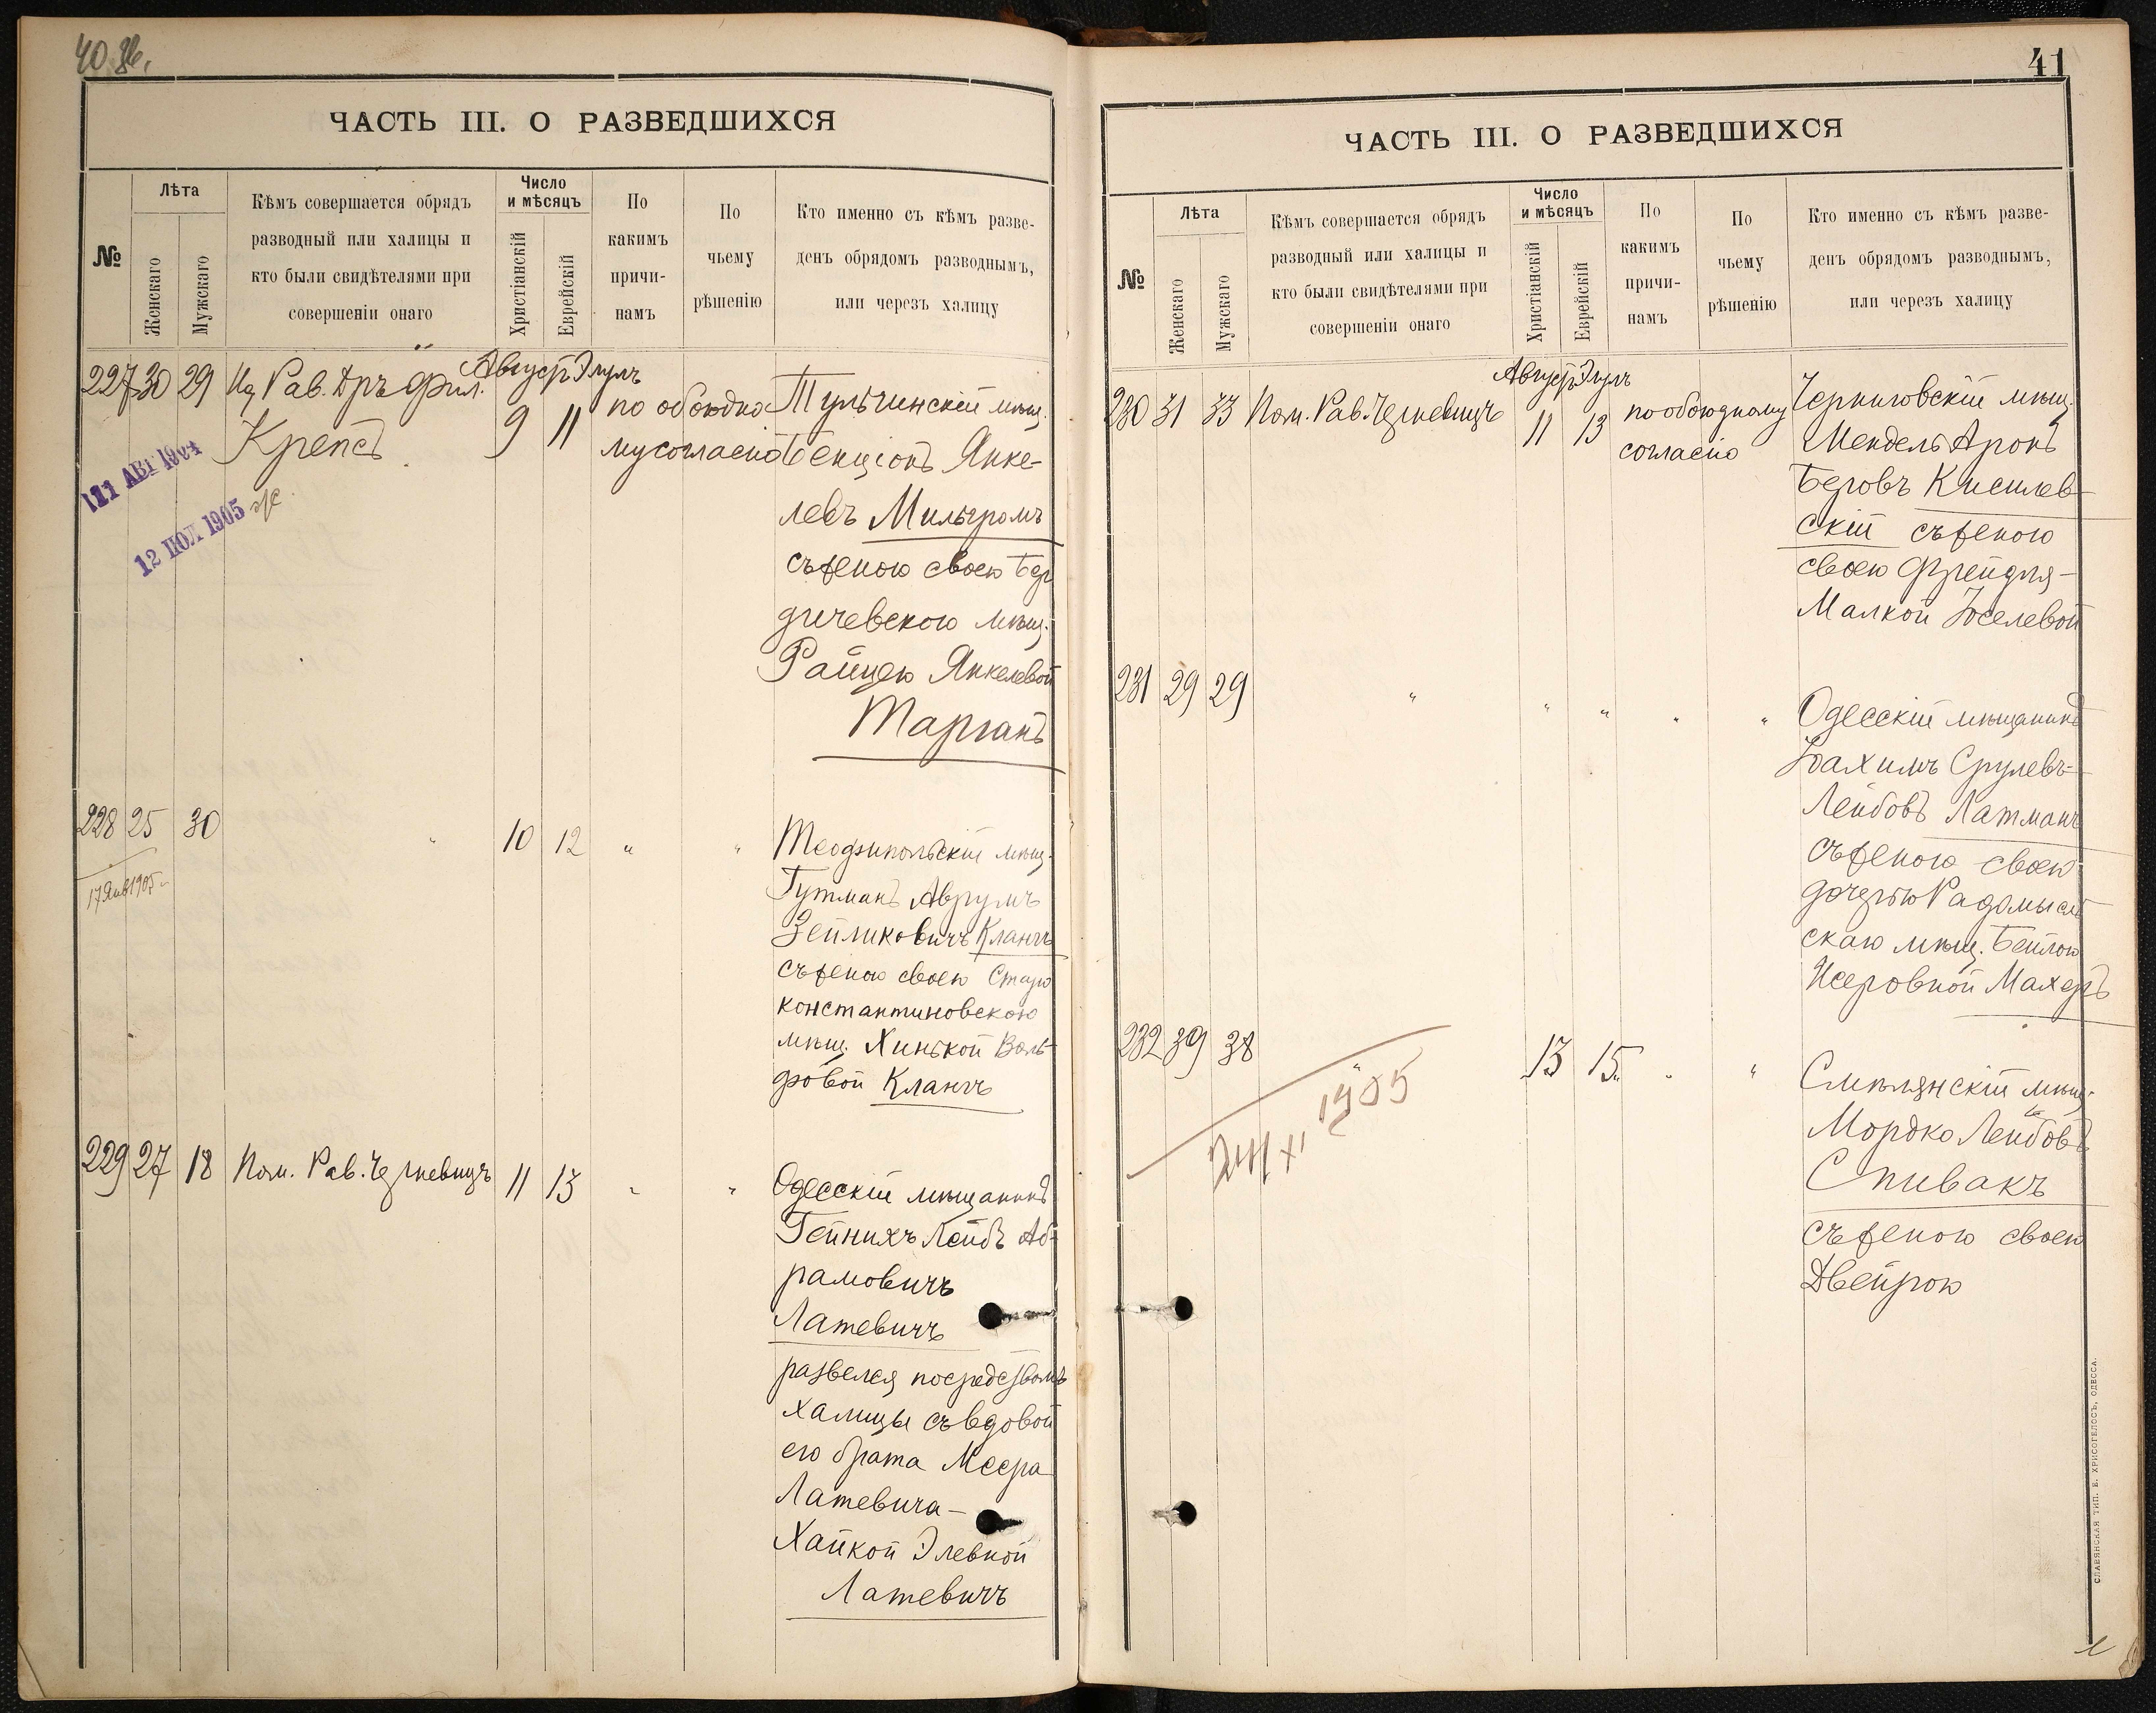 40 об.
ЧАСТЬ III. О РАЗВЕДШИХСЯ
№
Лѣта
Женскаго
Мужскаго
Кѣмъ совершается обрядъ
разводный или халицы и
кто были свидѣтелями при
совершеніи онаго
Число
и мѣсяцъ
Христіанскій
Еврейскій
По
какимъ
причи-
намъ
По
чьему
рѣшенію
Кто именно съ кѣмъ разве-
денъ обрядомъ разводнымъ,
или черезъ халицу
Август Элулъ
227 30 29 Рав. Дръ Фил.
Крепсъ
9 11
по обоюдно-
му согласію
Тульчинскій мѣщ.
Бенціонъ Янке-
левъ Мильгромъ
съ женою своею Бер
дичевскою мѣщ.
Райцею Янкелевой
Тарганъ
11 АВГ 1904
12 ІЮЛ 1905
228 25 30 " 10 12 " "
17 Янв 1905
Теофипольскій мѣщ.
Гутманъ Аврумъ
Зейликовичъ Кланчъ
съ женою своею Старо
константиновскою
мѣщ. Хинькой Воль-
фовой Кланчъ
229 27 18 Пом. Рав. Черневицъ 11 13 " "
Одесскій мѣщанинъ
Гейнихъ Лейбъ Аб-
рамовичъ
Латевичъ
развелся посредствомъ
халицы съ вдовой
его брата Меера
Латевича -
Хайкой Элевной
Латевичъ
41
ЧАСТЬ III. О РАЗВЕДШИХСЯ
№
Лѣта
Женскаго
Мужскаго
Кѣмъ совершается обрядъ
разводный или халицы и
кто были свидѣтелями при
совершеніи онаго
Число
и мѣсяцъ
Христіанскій
Еврейскій
По
какимъ
причи-
намъ
По
чьему
рѣшенію
Кто именно съ кѣмъ разве-
денъ обрядомъ разводнымъ,
или черезъ халицу
Август Элулъ
230 31 33 Пом. Рав. Черневицъ 11 13
по обоюдному
согласію
Черниговскій мѣщ.
Мендель Аронъ
Беровъ Кисилев-
скій съ женою
своею Фрейдля-
Малкой Іоселевой
231 29 29 " " " " "
Одесскій мѣщанинъ
Іоахимъ Срулевъ-
Лейбовъ Латманъ
съ женою своею
дочерью Радомысл
скаю мѣщ. Бейлою
Исеровной Махеръ
232 39 38 " 13 15 " "
24/XI 1905
Смѣлянскій мѣщ.
Мордко Лейбовъ
Спивакъ
съ женою своею
Двейрою
СЛАВЯНСКАЯ ТИП. Е. ХРИСОГЕЛОСЪ, ОДЕССА.